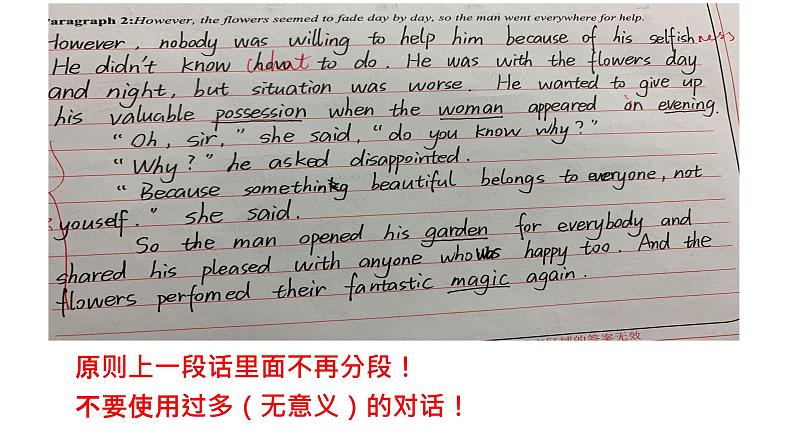 aragraph 2:However, the flowers seemed to fade day by day, so the man went everywhere for help.
However, nobody was willing to help him because of his selfishness
He didn't know what to do. He was with the flowers day
and night, but situation was worse. He wanted to give up
his valuable possession when the woman appeared in evening.
"Oh, sir," she said, "do you know why?"
"Why?" he asked disappointed.
"Because something beautiful belongs to everyone, not
youself." she said.
So the man opened his garden for everybody and
shared his pleased with anyone who was happy too. And the
flowers perfomed their fantastic magic again.
的答案无效
原则上一段话里面不再分段！
不要使用过多（无意义）的对话！